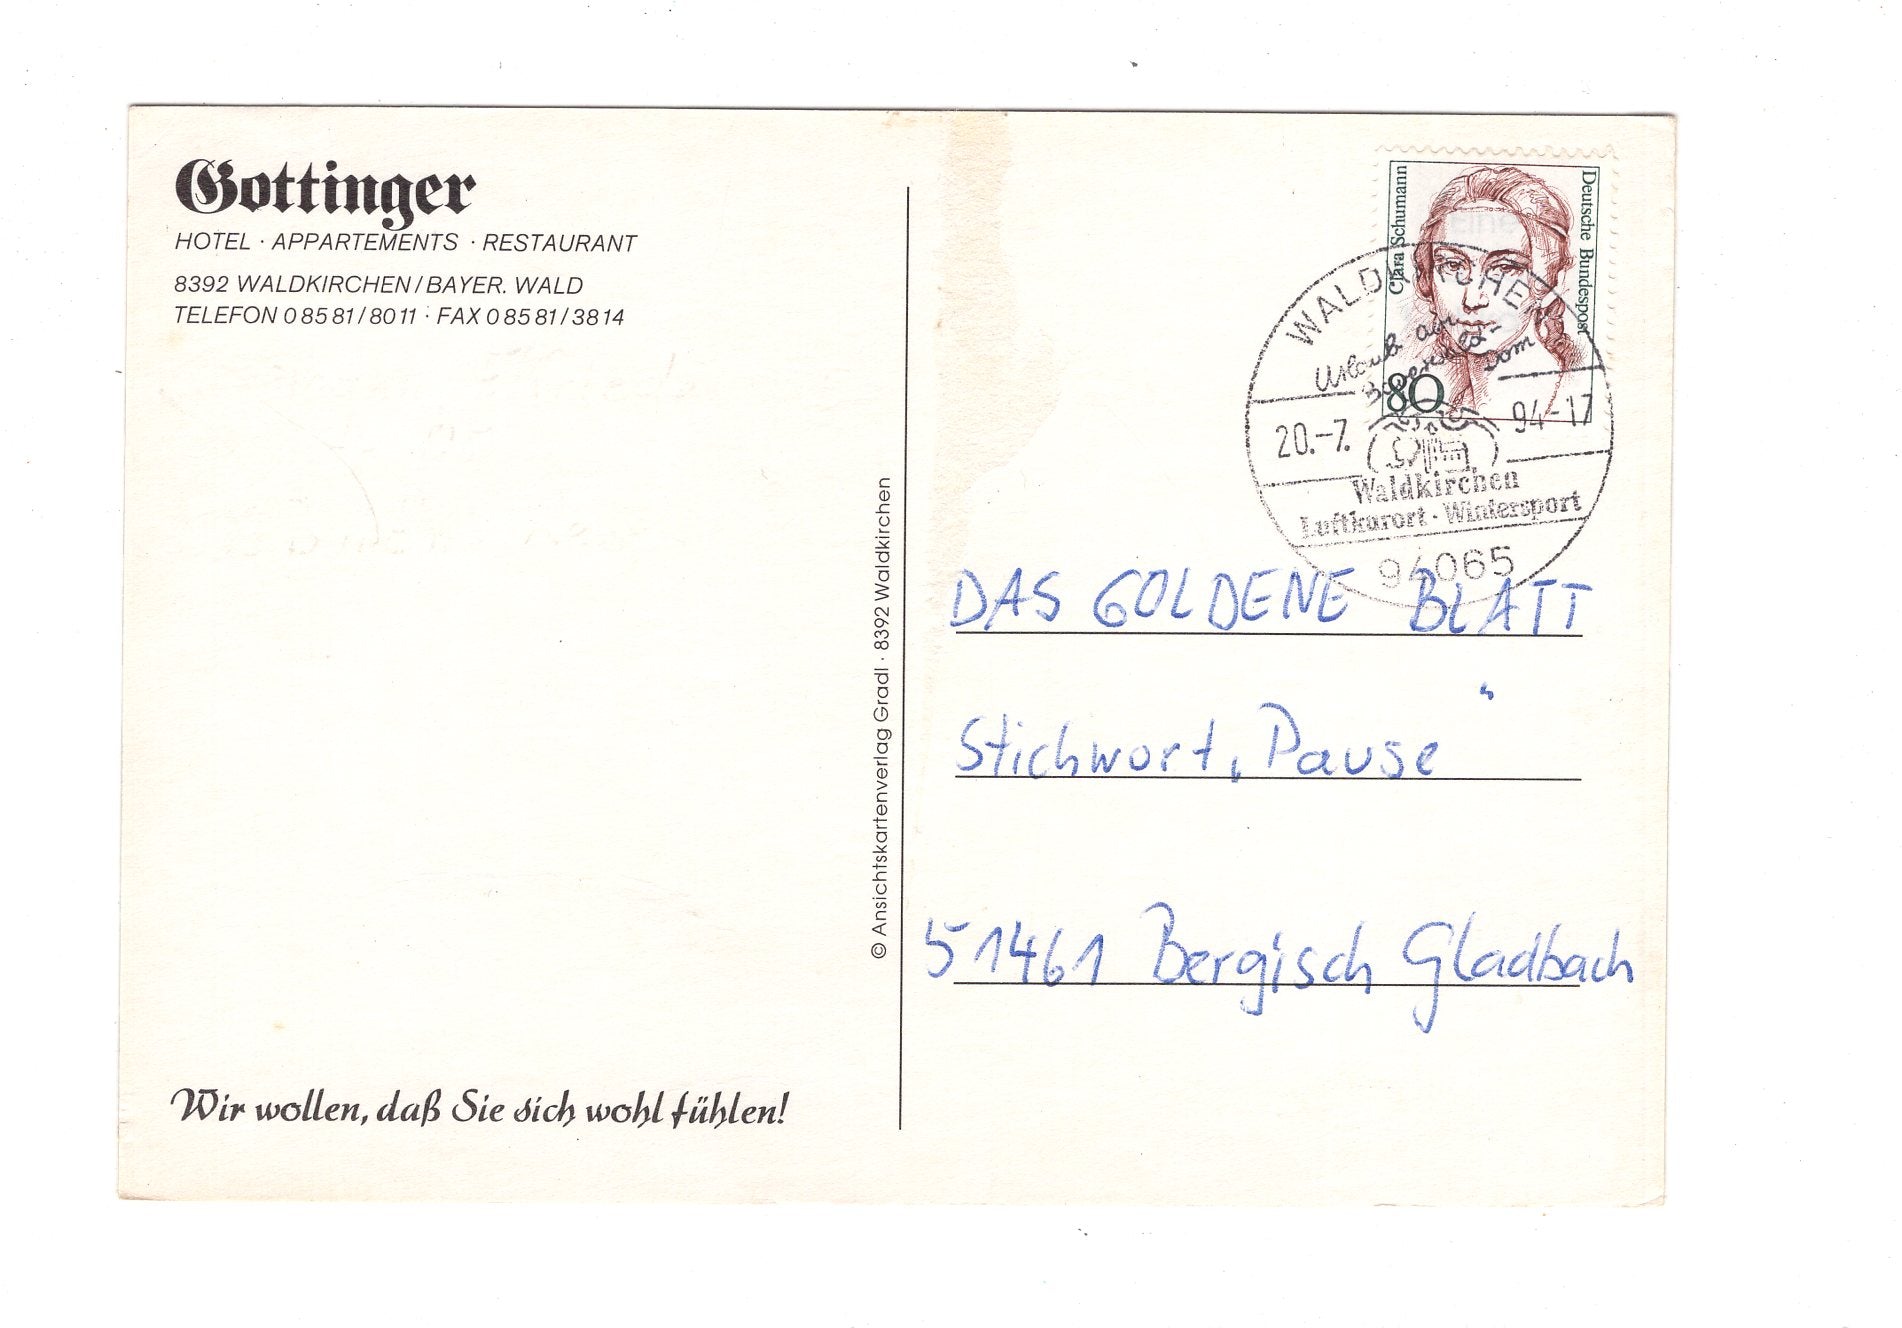 Gottinger
HOTEL · APPARTEMENTS · RESTAURANT
8392 WALDKIRCHEN/BAYER. WALD
TELEFON 0 85 81 / 80 11 · FAX 0 85 81 / 38 14
Wir wollen, daß Sie sich wohl fühlen!
© Ansichtskartenverlag Gradl · 8392 Waldkirchen
Clara Schumann
Deutsche Bundespost
80
WALDKIRCHEN
Urlaub am
Bayerwald-
Dom
20.-7. 94-17
Waldkirchen
Luftkurort · Wintersport
94065
DAS GOLDENE BLATT
Stichwort „Pause“
51461 Bergisch Gladbach